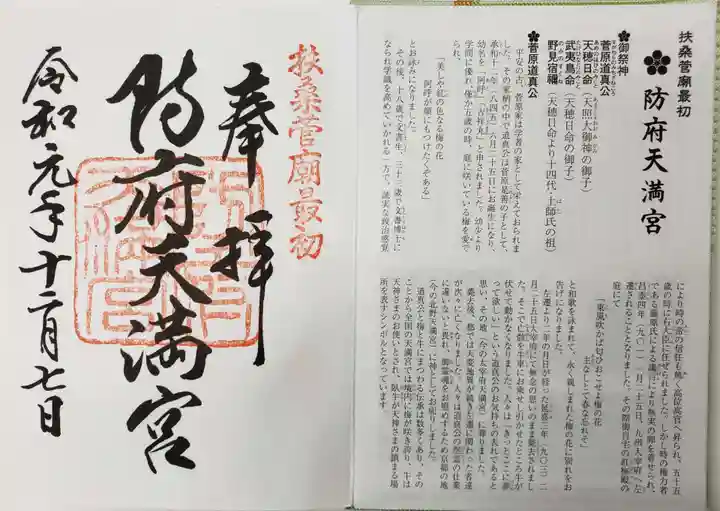 扶桑菅廟最初
防府天満宮
御祭神
菅原道真公
天穂日命（天照大御神の御子）
武夷鳥命（天穂日命の御子）
野見宿禰（天穂日命より十四代・土師氏の祖）
菅原道真公
平安の古、菅原家は学者の家として栄えておられま
した。その家柄の中で道真公は菅原是善の子として、
承和十二年（八四五）六月二十五日にお誕生になり、
幼名を「阿呼」「吉祥丸」と申されました。幼少より
学問に優れ、僅か五歳の時、庭に咲いている梅を愛で
られ、
「美しや紅の色なる梅の花
阿呼が顔にもつけたくぞある」
とお詠みになりました。
その後、十八歳で文章生、三十三歳で文章博士に
なられ学識を高めていかれる一方で、誠実な政治感覚
により時の帝の信任も篤く高位高官へ昇られ、五十五
歳の時に右大臣に任ぜられました。しかし時の権力者
である藤原氏による讒言により無実の罪を着せられ、
昌泰四年（九〇一）一月二十五日、九州大宰府へ左
遷されることとなりました。その際御自宅の紅梅殿の
庭にて
「東風吹かば匂ひおこせよ梅の花
主なしとて春な忘れそ」
と和歌を詠まれて、永く親しまれた梅の花に別れをお
告げになりました。
左遷より二年の月日が経った延喜三年（九〇三）二
月二十五日大宰府にて無念の思いのまま薨去されまし
た。そこで亡骸を牛車にお乗せし引かせたところ牛が
伏せて動かなくなりました。人々は「きっとここに葬
って欲しい」という道真公のお気持ちの表れであると
思い、その地（今の太宰府天満宮）に葬りました。
薨去後、都では天変地異が続き左遷に関わった者達
が次々に亡くなりました。人々は道真公の怨霊の仕業
に違いないと畏れ、御霊魂をお慰めするため京都の地
（今の北野天満宮）に神としてお祀りしました。
道真公と梅と牛にまつわる伝承は数多くあり、その
ことから全国の天満宮では境内に梅が咲き誇り、牛は
天神さまのお使いとされ、臥牛が天神さまの鎮まる場
所を表すシンボルとなっています。
扶桑菅廟最初
奉拝
防府天満宮
令和元年十二月七日